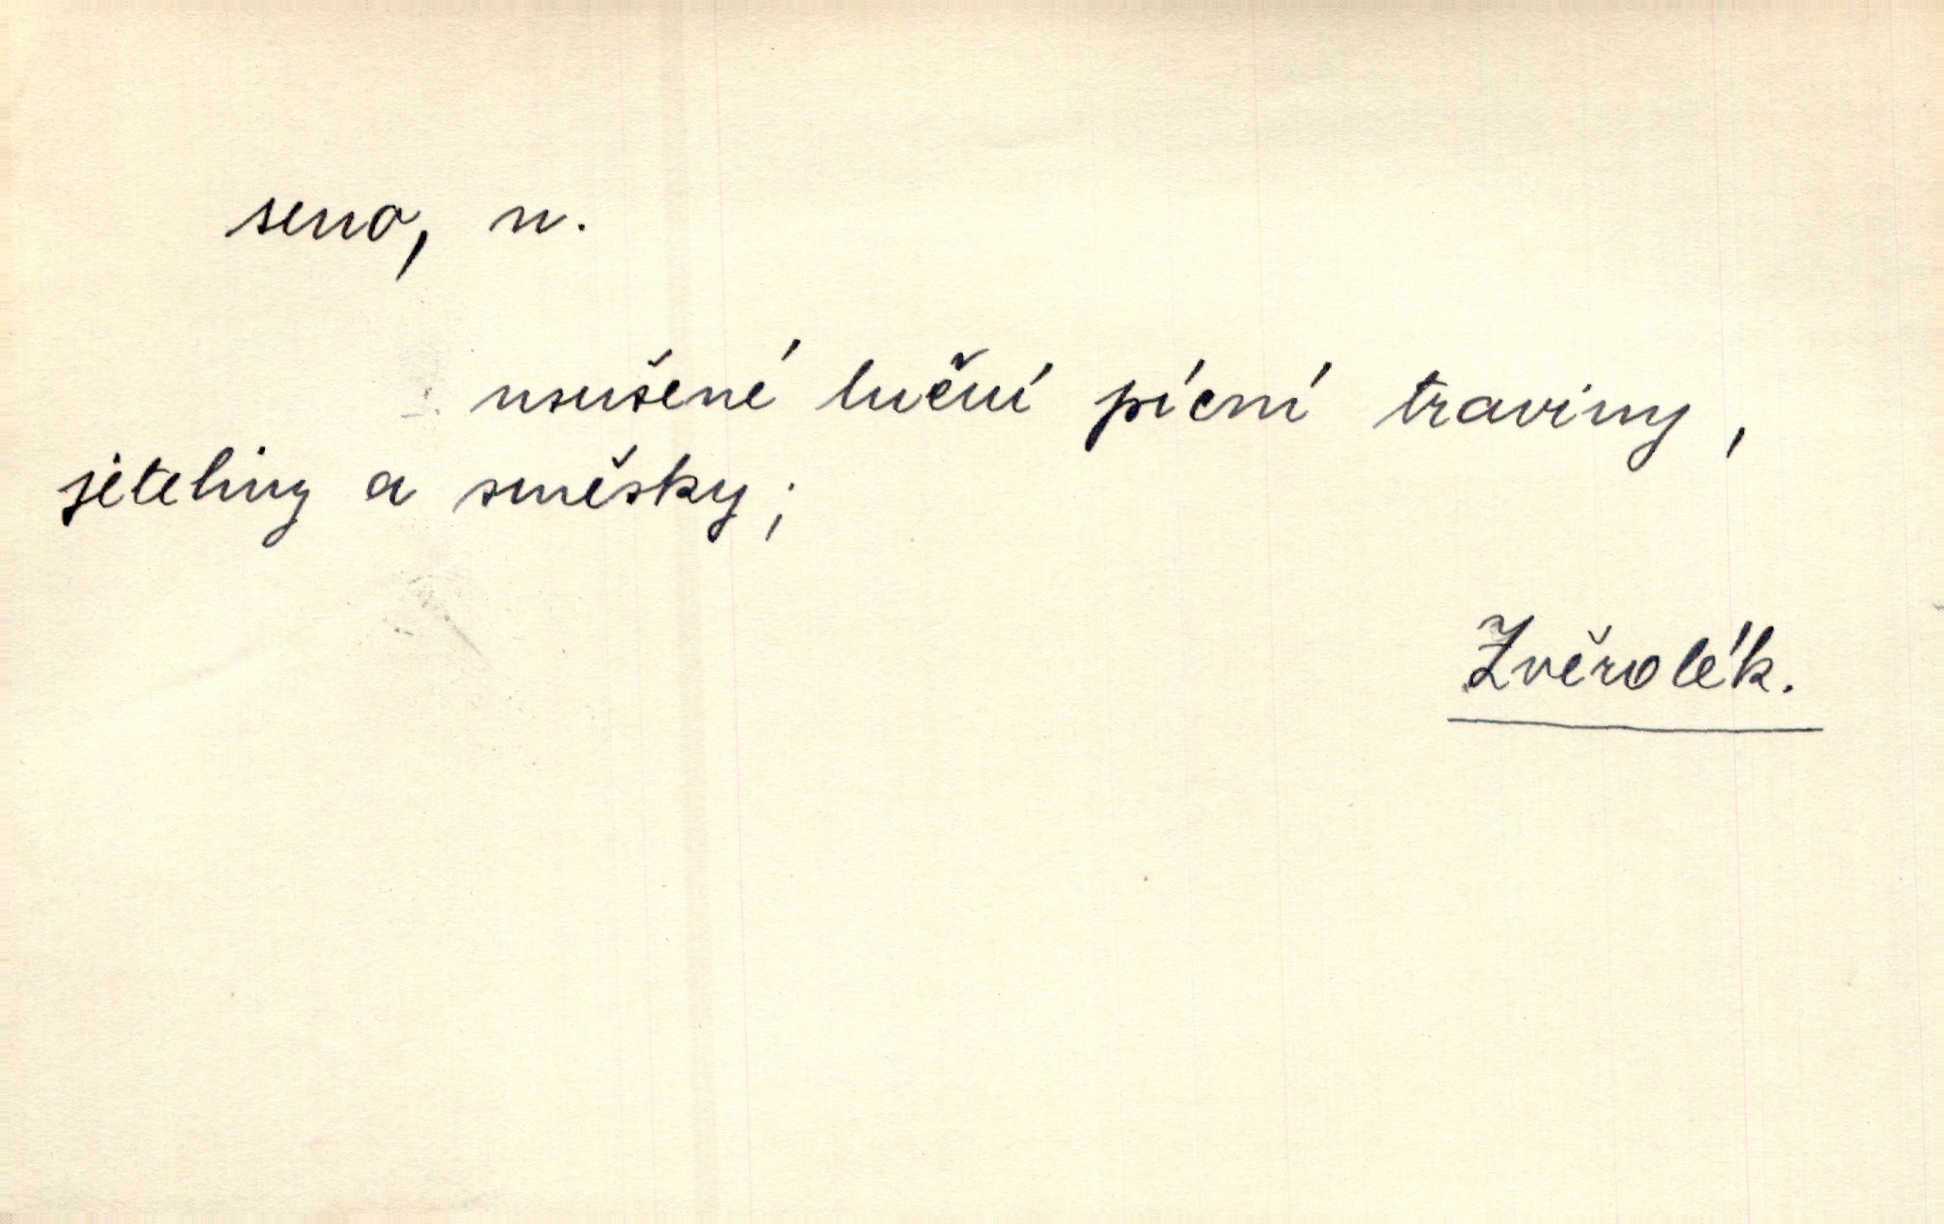 seno, n.
usušené luční pícní traviny,
jeteliny a směsky;
Zvěrolék.